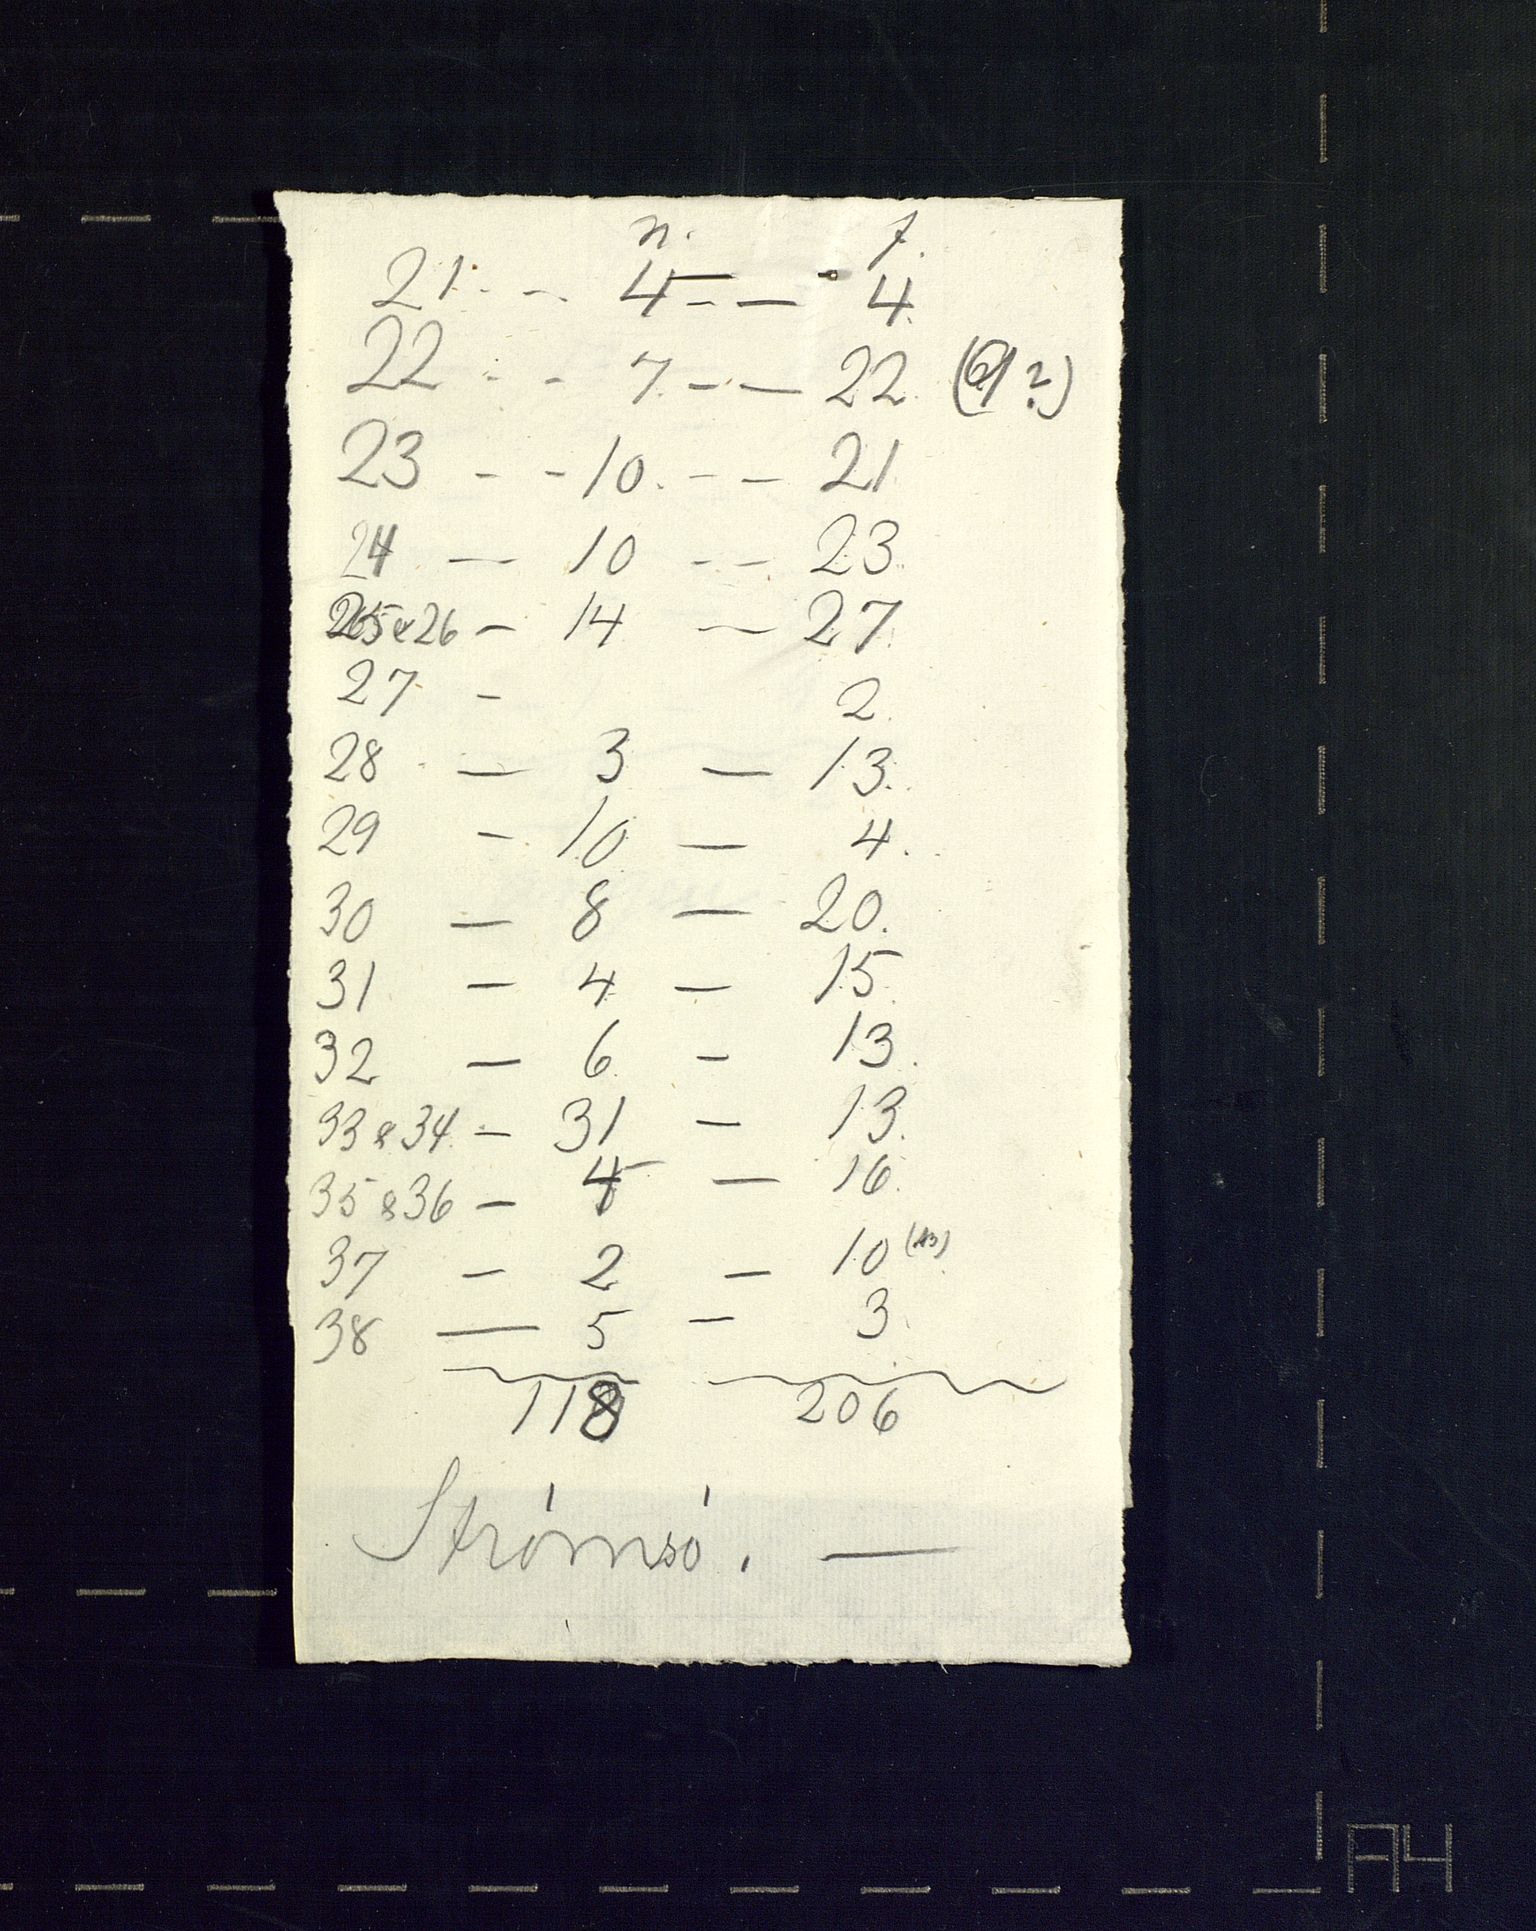 n. f.
21 - - 4 - — 4.
22 - - 7 - — 22. (6/ ?)
23 - - 10. - - 21
24 — 10 - - 23.
25 & 26 - 14 — 27.
27 - 2.
28 — 3 — 13.
29 - 10 — 4.
30 — 8 — 20.
31 - 4 — 15.
32 — 6. - 13.
33 & 34 - 31 — 13.
35 & 36 - 4 — 16.
37 - 2 — 10
38 — 5 - 3.
118 206
Strömsö. —
A4